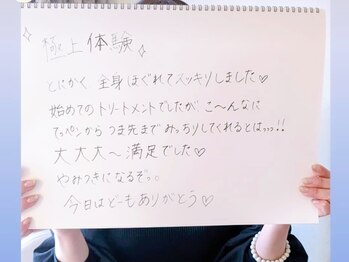 極上体験
とにかく 全身ほぐれてスッキリしました♡
始めてのトリートメントでしたが こ〜んなに
てっぺんから つま先まで みっちりしてくれるとは…!!
大大大〜満足でした♡
やみつきになるぞっ。
今日はどーもありがとう♡